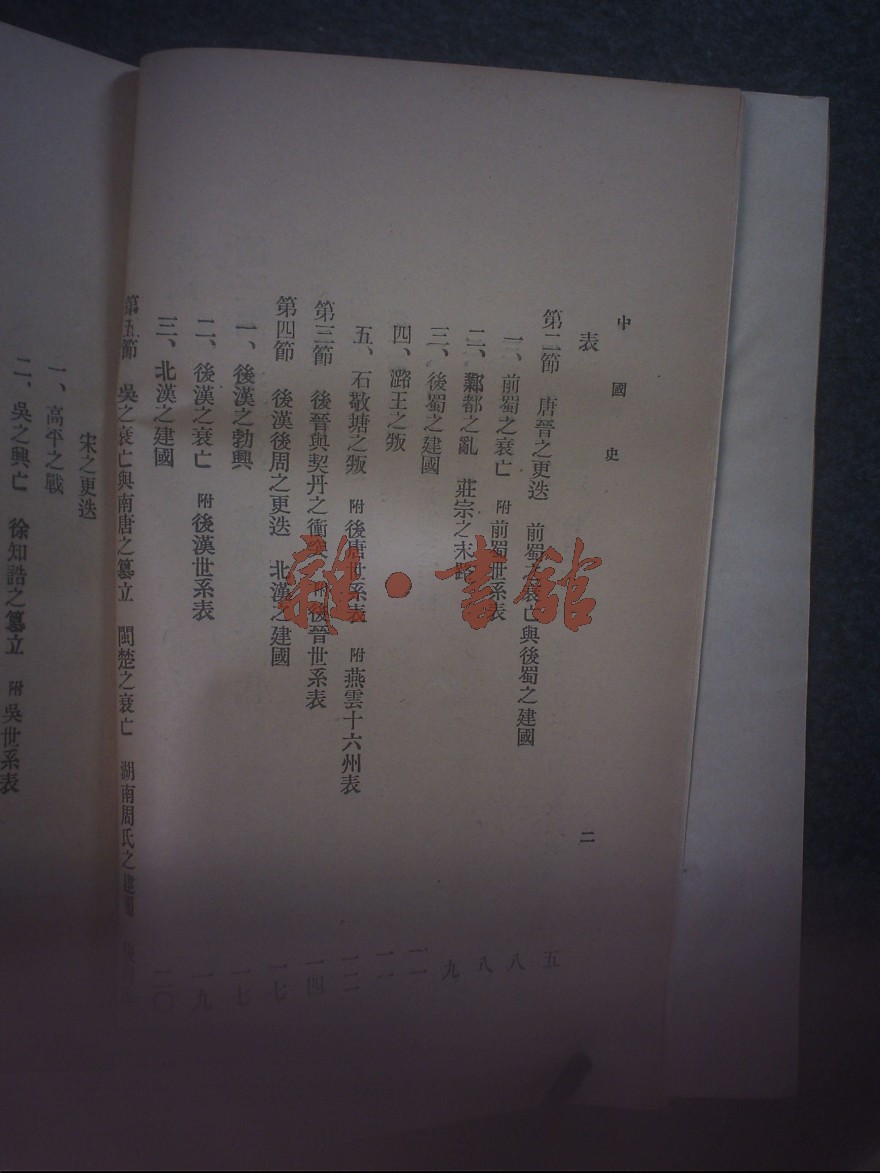 中國史
二
表
第二節 唐晉之更迭 前蜀之衰亡與後蜀之建國
五
一、前蜀之衰亡 附前蜀世系表
八
二、鄴都之亂 莊宗之末路
八
三、後蜀之建國
九
四、潞王之叛
一一
五、石敬塘之叛 附後唐世系表 附燕雲十六州表
第三節 後晉與契丹之衝突 附後晉世系表
一四
第四節 後漢後周之更迭 北漢之建國
一七
一、後漢之勃興
一七
二、後漢之衰亡 附後漢世系表
一九
三、北漢之建國
二〇
第五節 吳之衰亡與南唐之篡立 閩楚之衰亡 湖南周氏之建國
宋之更迭
一、高平之戰
二、吳之興亡 徐知誥之篡立 附吳世系表
雜·書館